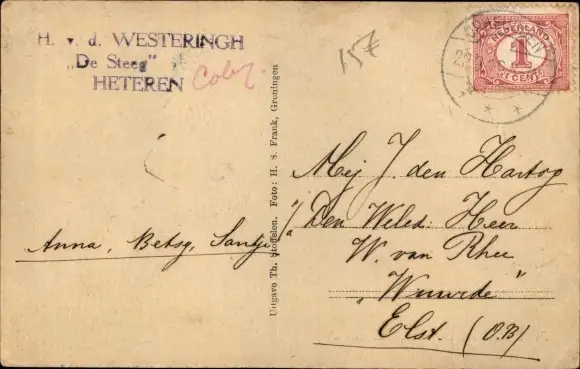 H. v. d. WESTERINGH
"De Steeg"
HETEREN
15€
NEDERLAND
1
CENT
Mej J. den Hartog
Den Weled: Heer
W. van Rhee
Elst. (O.B)
Anna, Betsy, Santje
Uitgave Th. Stoffelen. Foto: H. S. Frank, Groningen